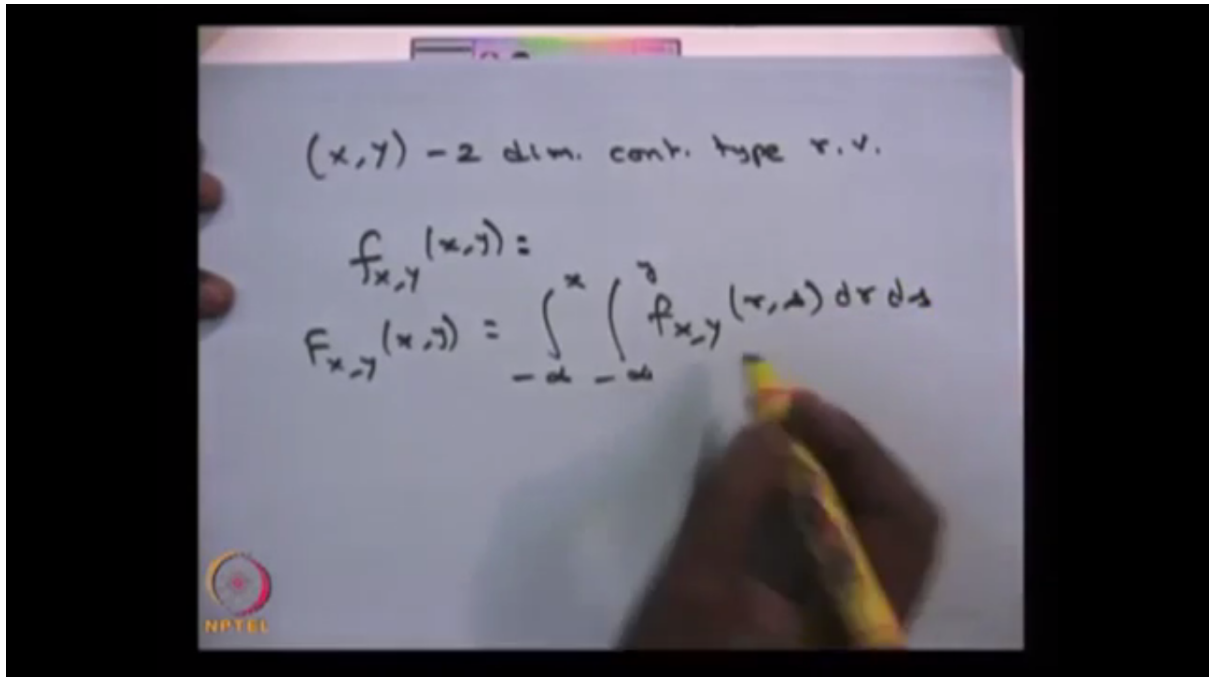 (X,Y) - 2 dim. cont. type r.v.
f_{X,Y}(x,y) =
F_{X,Y}(x,y) = ∫_{-∞}^{x} ∫_{-∞}^{y} f_{X,Y}(r,s) dr ds
NPTEL